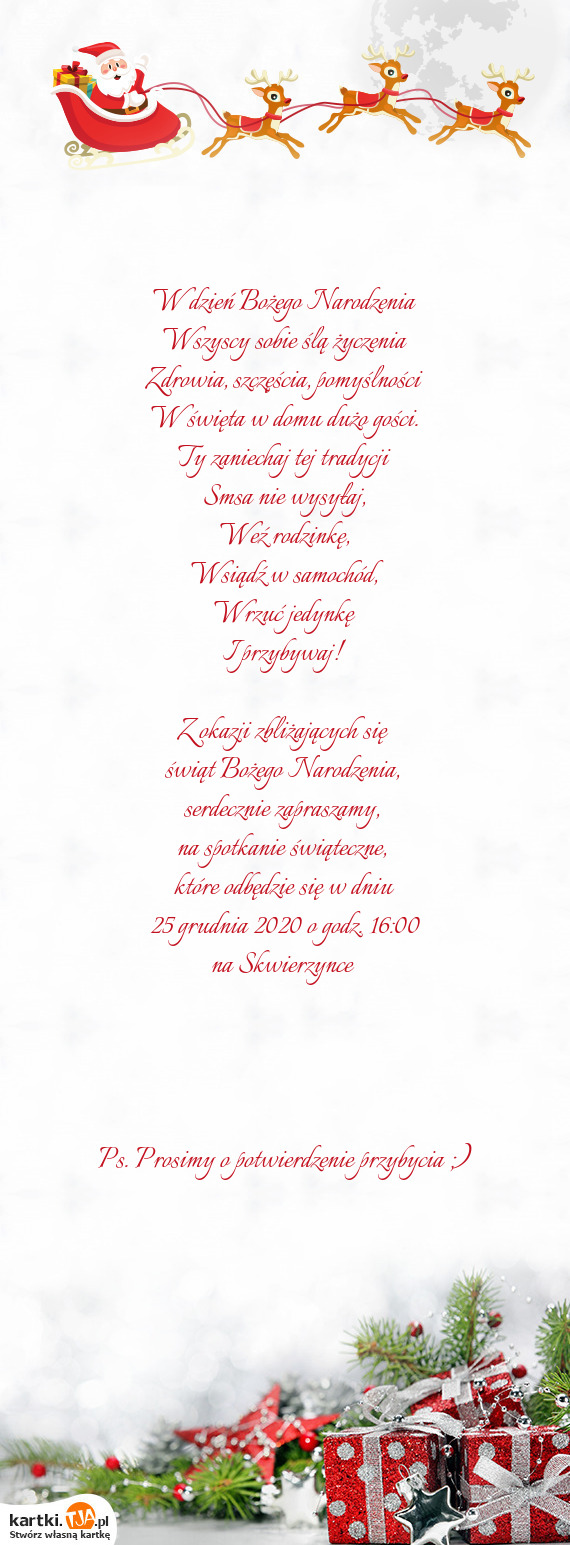 W dzień Bożego Narodzenia
Wszyscy sobie ślą życzenia
Zdrowia, szczęścia, pomyślności
W święta w domu dużo gości.
Ty zaniechaj tej tradycji
Smsa nie wysyłaj,
Weź rodzinkę,
Wsiądź w samochód,
Wrzuć jedynkę
I przybywaj!
Z okazji zbliżających się
świąt Bożego Narodzenia,
serdecznie zapraszamy,
na spotkanie świąteczne,
które odbędzie się w dniu
25 grudnia 2020 o godz. 16:00
na Skwierzynce
Ps. Prosimy o potwierdzenie przybycia ;)
kartki.TJA.pl
Stwórz własną kartkę